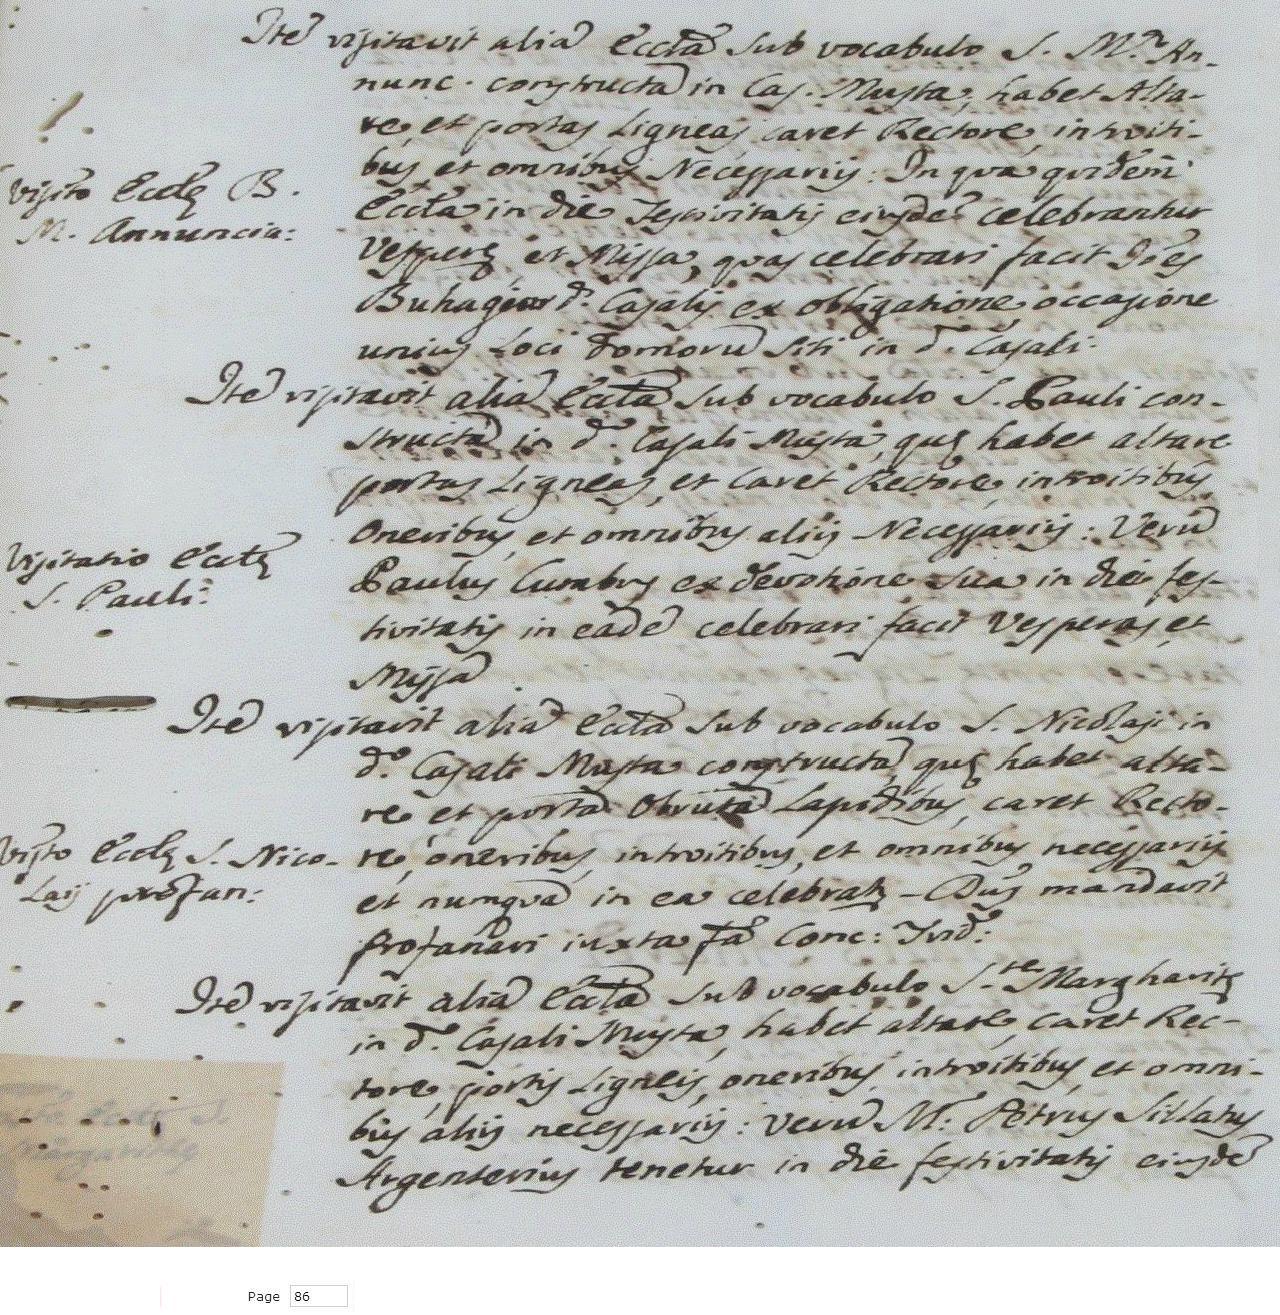 Ite visitavit alia Eccta sub vocabulo S. M.e An-
nunc. constructa in Cas. Musta, habet Alta-
re, et portas Ligneas, caret Rectore, introiti-
bus et omnibus Necessariis: In qua quidem
Visito Eccle B.
M. Annuncia:
Eccta in die festivitatis eiusde celebrantur
Vespere et Missa, quas celebrari facit Joes
Buhagiar d. Casalis ex obligatione occasione
unius Loci domoru siti in d. Casali.
Ite visitavit alia Eccta sub vocabulo S. Pauli con-
structa in d. Casali Musta, que habet altare
portas Ligneas, et caret Rectore, introitibus
oneribus, et omnibus aliis Necessariis: Veru
Visitatio Eccte
S. Pauli:
Paulus Cumbus ex devotione sua in die fes-
tivitatis in eade celebrari facit Vesperas, et
Missa
Ite visitavit alia Eccta sub vocabulo S. Nicolaji in
d.o Casali Musta constructa, que habet alta-
re et porta obruta Lapidibus, caret Recto-
Visito Eccle S. Nico-
Laij profan:
re, oneribus, introitibus, et omnibus necessariis
et nunqua in ea celebrat - Dus mandavit
profanari iuxta fa Conc: Trid:
Ite visitavit alia Eccta sub vocabulo S.te Margharite
in d. Casali Musta, habet altare, caret Rec-
tore, portis Ligneis, oneribus, introitibus, et omni-
bus aliis necessariis: Veru M: Petrus Sillatus
Argenterius tenetur in die festivitatis eiusde
Eccte S.
Margarite
Page 86